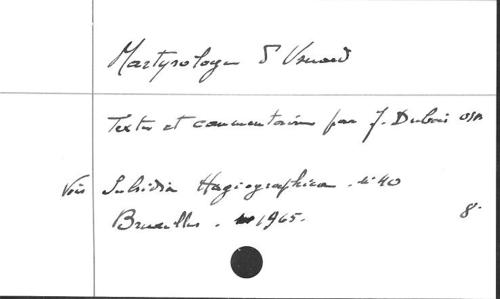 Martyrologe d'Usuard
Textes et commentaires par J. Dubois OSB
Voir Subsidia Hagiographica. n° 40
Bruxelles. 1965. 8°